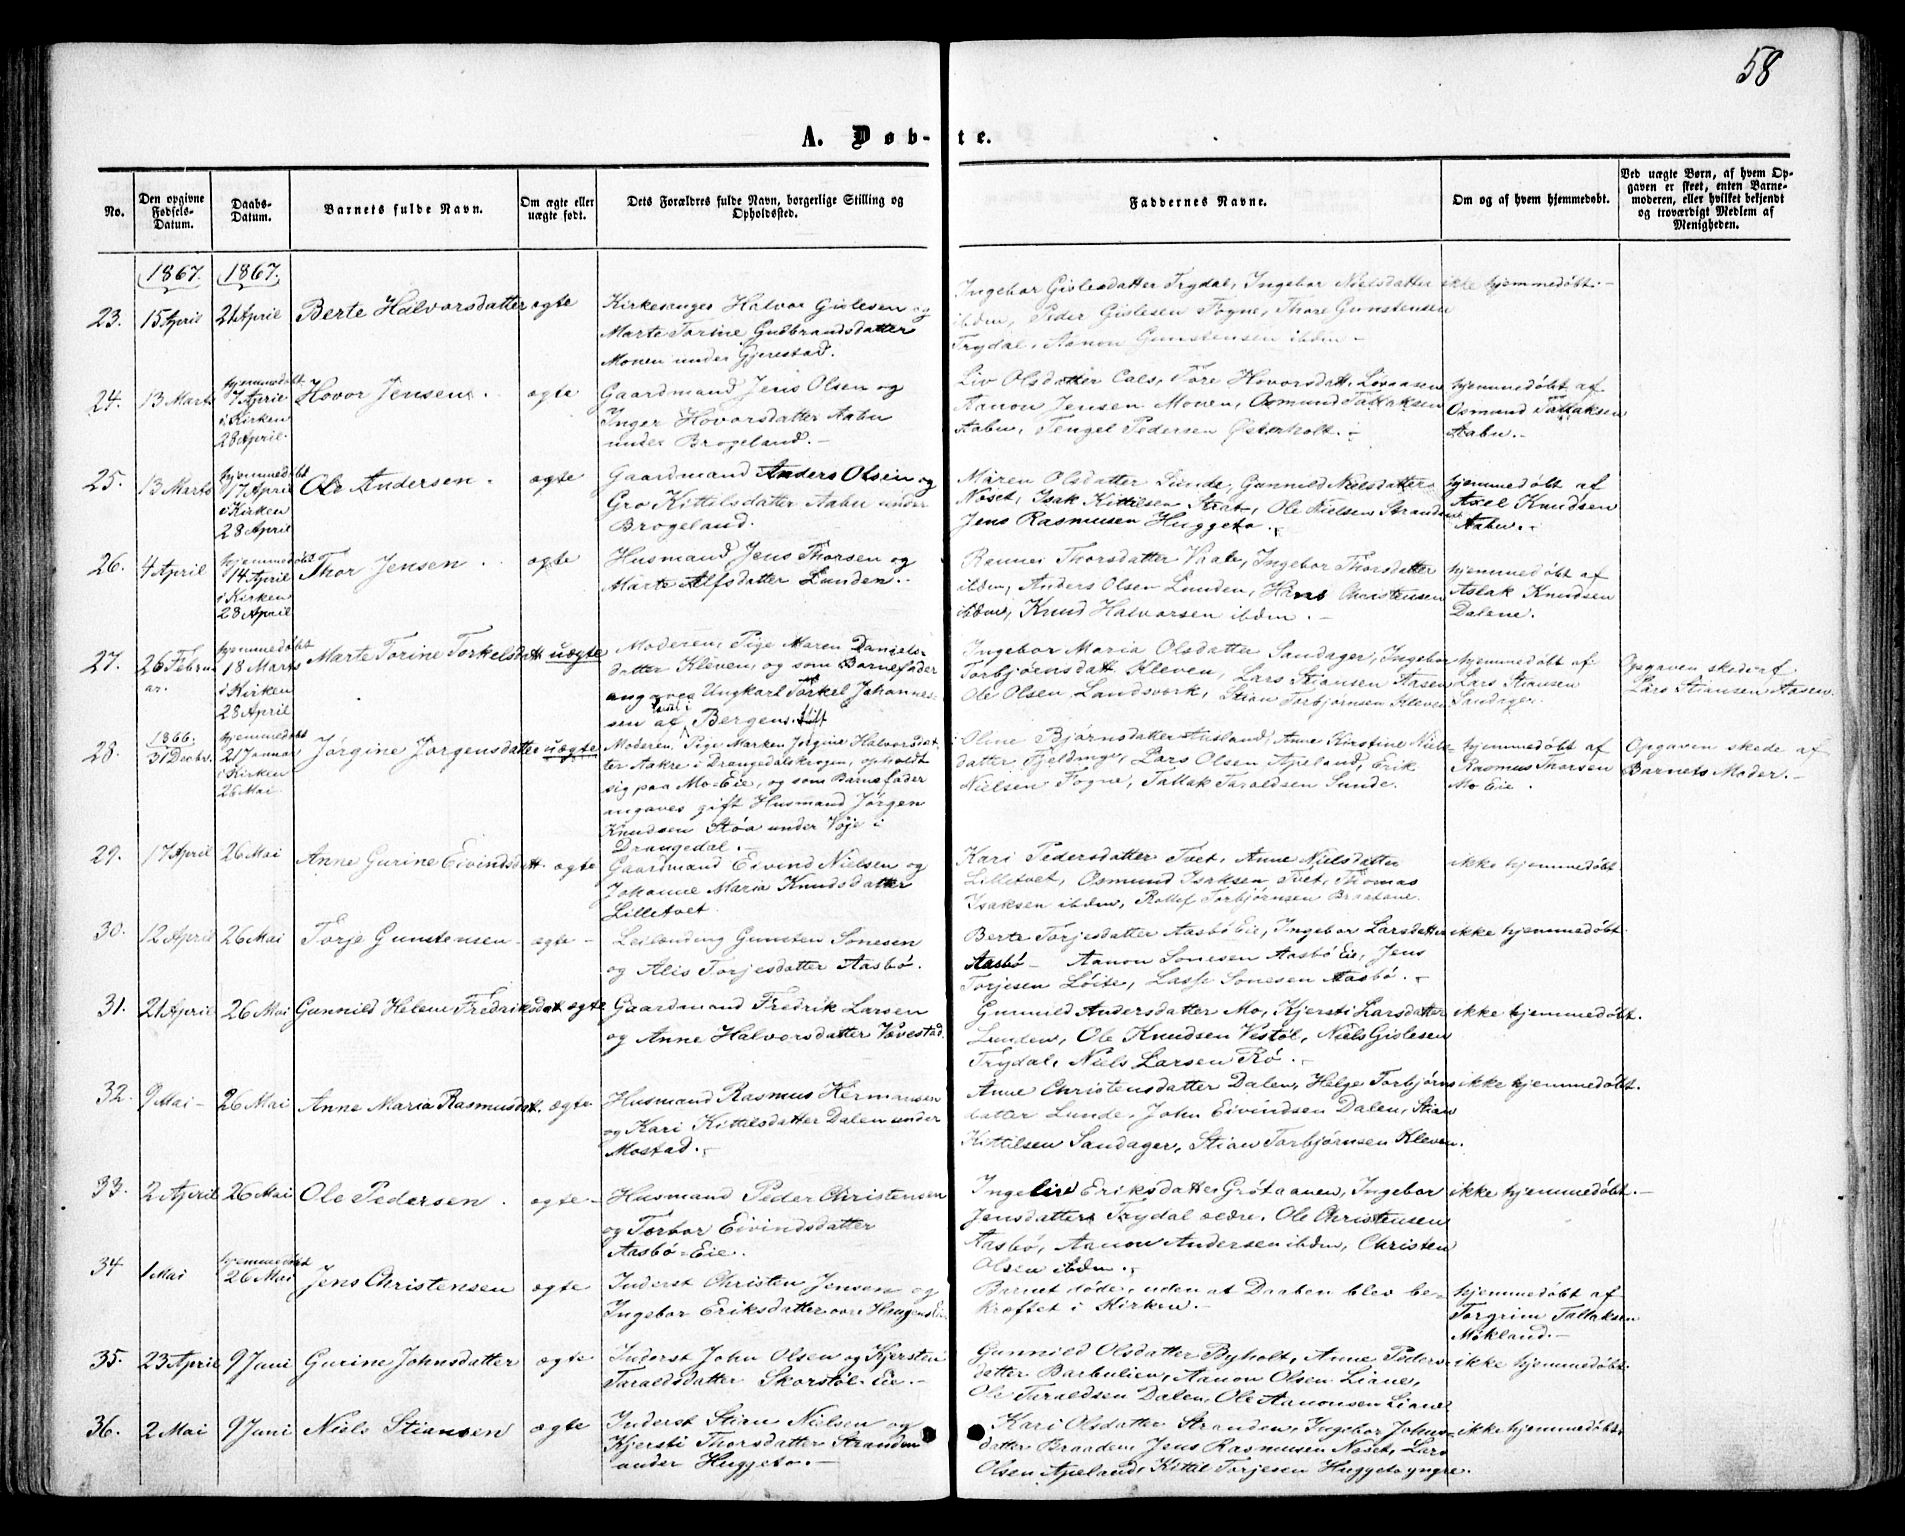 58
A. Døb-te.
No.
Den opgivne Fødsels-Datum.
Daabs-Datum.
Barnets fulde Navn.
Om ægte eller uægte født.
Dets Forældres fulde Navn, borgerlige Stilling og Opholdssted.
Faddernes Navne.
Om og af hvem hjemmedøbt.
Ved uægte Børn, af hvem Opgaven er skeet, enten Barnemoderen, eller hvilket bekjendt og troværdigt Medlem af Menigheden.
1867. 1867.
23. 15 April 21 April Berte Halvorsdatter ægte
Kirkesanger Halvor Gislesen og
Marte Torine Gulbrandsdatter
Monen under Gjerestad.
Ingebor Gislesdatter Trydal, Ingebor Nielsdatter
ibdm, Peder Gislesen Fogne, Thore Gunstensen
Trydal, Aanon Gunstensen ibdm.-
ikke hjemmedøbt.-
24. 13 Marts hjemmedøbt 7 April i Kirken 28 April Hovor Jensen. ægte
Gaardmand Jens Olsen og
Inger Hovorsdatter Aabu
under Brogeland.-
Liv Olsdatter Cals, Tore Hovorsdatt. Lovaasen
Aanon Jensen Monen, Osmund Tallaksen
Aabu, Tengel Pedersen Østerholt.-
hjemmedøbt af
Osmund Tallaksen
Aabu.-
25. 13 Marts hjemmedøbt 17 April i Kirken 28 April Ole Andersen. ægte
Gaardmand Anders Olsen og
Gro Kittelsdatter Aabu under
Brogeland.
Maren Olsdatter Lunde, Gunnild Nielsdatter
Noset, Isak Kittilsen Strat, Ole Nielsen Stranden
Jens Rasmusen Huggeto.-
hjemmedøbt af
Axel Knudsen
Aabu.-
26. 4 April hjemmedøbt 14 April i Kirken 28 April Thor Jensen. ægte
Husmand Jens Thorsen og
Marte Alfsdatter Lunden.-
Rannei Thorsdatter Vaale, Ingebor Thorsdatter
ibdm, Anders Olsen Lunden, Hans Christensen
ibdm, Knud Halvorsen ibdm.-
hjemmedøbt af
Aslak Knudsen
Dalene.
27. 26 Februar. hjemmedøbt 18 Marts i Kirken 28 April Marte Torine Torkelsdatt. uægte
Moderen, Pige Maren Daniels-
datter Kleven, og som Barnefader
angaves Ungkarl Torkel Johannes-
sen af Bergens Stift
Ingebor Maria Olsdatter Sandager, Ingebor
Torbjørnsdatt. Kleven, Lars Stiansen Aasen
Ole Olsen Landsverk, Stian Torbjørnsen Kleven
hjemmedøbt af
Lars Stiansen
Sandager.
Opgaven skede af
Lars Stiansen Aasen.
28. 1866. 31 Decbr. hjemmedøbt 21 Januar i Kirken 26 Mai Jørgine Jørgensdatter uægte
Moderen, Pige Marken Jørgine Halvorsdat-
ter Aakre i Drangedalskrogen, opholdt
sig paa Mo-Eie, og som Barnefader
angaves gift Husmand Jørgen
Knudsen Støa under Vøje i
Drangedal.-
Oline Bjørnsdatter Ausland, Anne Kirstine Niels-
datter Fjeldinge, Lars Olsen Apeland, Erik
Nielsen Fogne, Tallak Taraldsen Lunde.
hjemmedøbt af
Rasmus Thorsen
Mo Eie.
Opgaven skede af
Barnets Moder.-
29. 17 April 26 Mai Anne Gurine Eivindsdatt. ægte
Gaardmand Eivind Nielsen og
Johanne Maria Knudsdatter
Lilletvet.
Kari Pedersdatter Tvet, Anne Nielsdatter
Lilletvet, Osmund Isaksen Tvet, Thomas
Isaksen ibdm, Rollef Torbjørnsen Braatane.
ikke hjemmedøbt
30. 12 April 26 Mai Torje Gunstensen ægte
Leilænding Gunsten Sonesen
og Alis Torjesdatter Aasbø.
Berte Torjesdatter Aasbø Eie, Ingebor Larsdatter
Aasbø- Aanon Sonesen Aasbø Eie, Jens
Torjesen Løite, Lasse Sonesen Aasbø.-
ikke hjemmedøbt.
31. 21 April 26 Mai Gunnild Helene Fredriksdatt. ægte
Gaardmand Fredrik Larsen
og Anne Halvorsdatter Vævestad.
Gunnild Andersdatter Mo, Kjersti Larsdatter
Lunden, Ole Knudsen Vestøl, Niels Gislesen
Trydal, Niels Larsen Rø.-
ikke hjemmedøbt.
32. 9 Mai- 26 Mai Anne Maria Rasmusdatt. ægte
Husmand Rasmus Hermansen
og Kari Kittilsdatter Dalen under
Mostad.-
Anne Christensdatter Dalen, Helge Torbjørns-
datter Lunde, John Eivindsen Dalen, Stian
Kittilsen Sandager, Stian Torbjørnsen Kleven.
ikke hjemmedøbt.
33. 2 April 26 Mai Ole Pedersen. ægte-
Husmand Peder Christensen
og Torbor Eivindsdatter
Aasbø-Eie.
Ingeliv Eriksdatter Grøtaanen, Ingebor
Jensdatter Trydal ældre. Ole Christensen
Aasbø, Aanon Andersen ibdm, Christen
Olsen ibdm.-
ikke hjemmedøbt.-
34 1 Mai hjemmedøbt 26 Mai Jens Christensen ægte
Inderst Christen Jensen og
Ingebor Eriksdatter
Barnet døde, uden at Daaben blev be-
kræftet i Kirken.-
hjemmedøbt af
Torgrim Tallaksen
Mokland.-
35. 23 April 9 Juni Gurine Johnsdatter ægte
Inderst John Olsen og Kjersten
Taraldsdatter Skorstøl-Eie.-
Gunnild Olsdatter Byholt, Anne Peders-
datter Barbulien, Aanon Olsen Liane,
Ole Taraldsen Dalen, Ole Aanonsen Liane
ikke hjemmedøbt.
36. 2 Mai 9 Juni Niels Stiansen ægte
Inderst Stian Nielsen og
Kjersti Thorsdatter Stranden
under Huggeto.-
Kari Olsdatter Stranden, Ingebor Johns-
datter Braaden, Jens Rasmusen Noset, Lars
Olsen Apeland, Kittil Torjesen Huggeto yngre.
ikke hjemmedøbt.